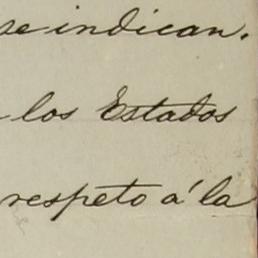 se indican.
los Estados
respeto á la